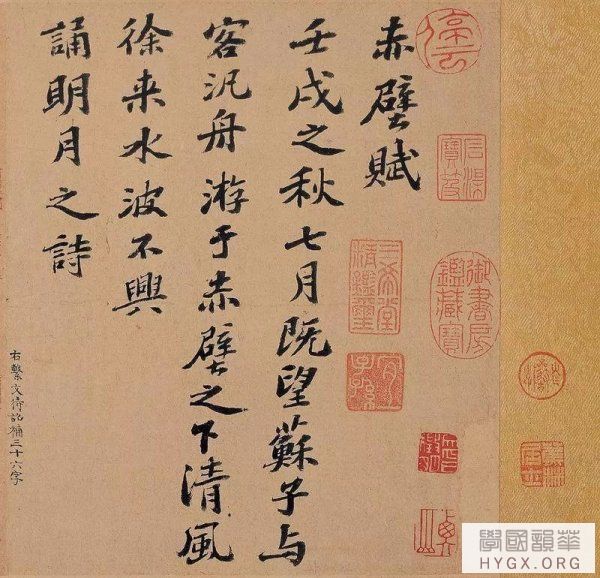 停雲
御書房鑑藏寶
三希堂精鑑璽
宜子孫
赤壁賦
壬戌之秋七月既望蘇子与
客汎舟游于赤壁之下清風
徐来水波不興
誦明月之詩
右繫文待詔補三十六字
學國韻華
HYGX.ORG